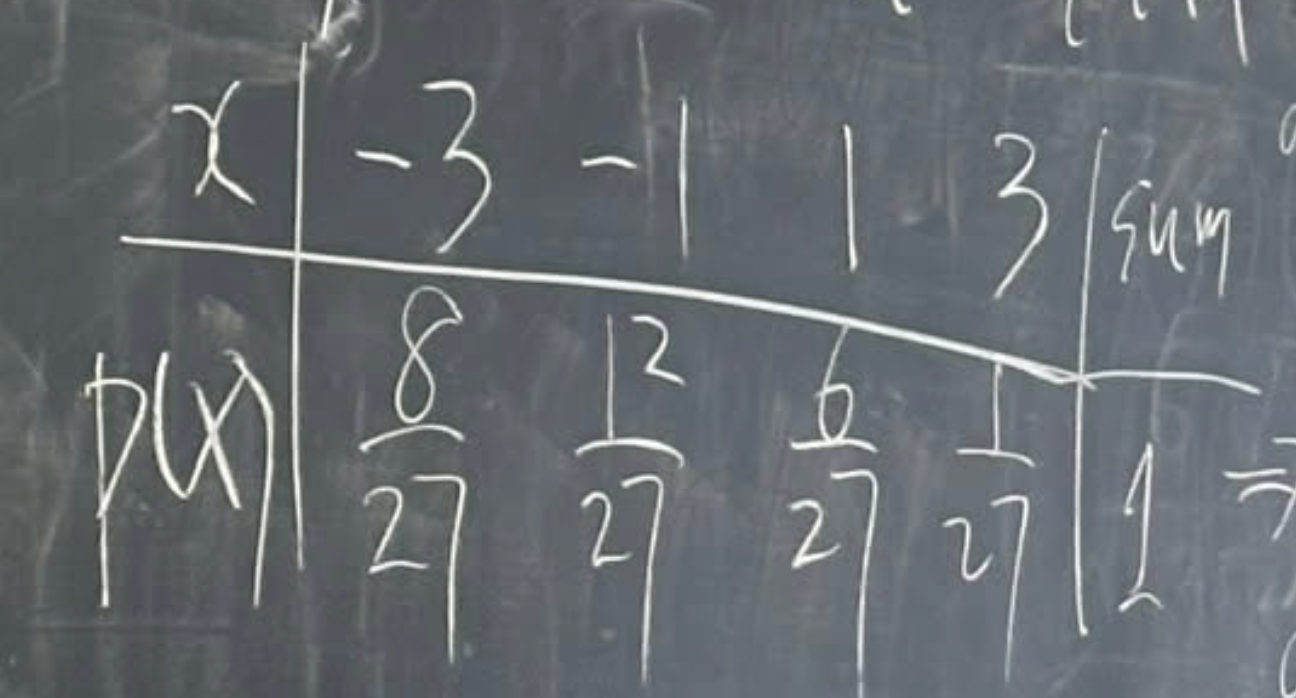 x | -3 -1 1 3 | sum
p(x) | 8/27 12/27 6/27 1/27 | 1